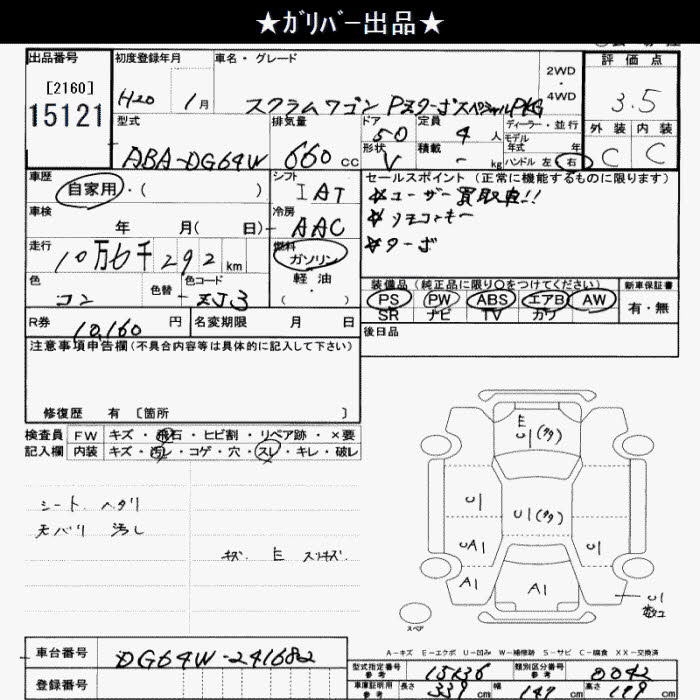 ★ｶﾞﾘﾊﾞｰ出品★
出品番号
[2160]
15121
初度登録年月
H20 1月
車名・グレード
スクラムワゴン PZターボスペシャルPKG
2WD
・
4WD
評価点
3.5
外装 内装
C C
型式
ABA-DG64W
排気量
660 CC
ドア
50
定員
4 人
形状
V
積載
- kg
ディーラー・並行
モデル
年式 年
ハンドル 左 右
車歴
自家用・( )
シフト
IAT
車検
年 月( 日)
冷房
AAC
走行
10万6千292 km
燃料
ガソリン
軽油
・
( )
色
コン
色替
-
色コード
ZJ3
R券
10,160 円
名変期限 月 日
セールスポイント (正常に機能するものに限ります)
☆ユーザー買取車!!
☆リモコンキー
☆ターボ
装備品 (純正品に限り○をつけてください)
PS PW ABS エアB AW
SR ナビ TV カワ
新車保証書
有・無
後日品
注意事項申告欄(不具合内容等は具体的に記入して下さい)
修復歴 有 〔箇所 〕
検査員 FW キズ・飛石・ヒビ割・リペア跡・×要
記入欄 内装 キズ・汚レ・コゲ・穴・スレ・キレ・破レ
シート ヘタリ
天バリ 汚レ
キズ E スリキズ
E
U1(タタ)
U1
U1(タタ)
UA1
U1
A1
A1
U1
数ユ
スペア
A-キズ E-エクボ U-凹み W-補修跡 S-サビ C-腐食 XX-交換済
車台番号
DG64W-241682
登録番号
型式指定番号
参考
15636
類別区分番号
参考
0042
車庫証明用
参考
長さ 339 cm
幅 147 cm
高さ 189 cm